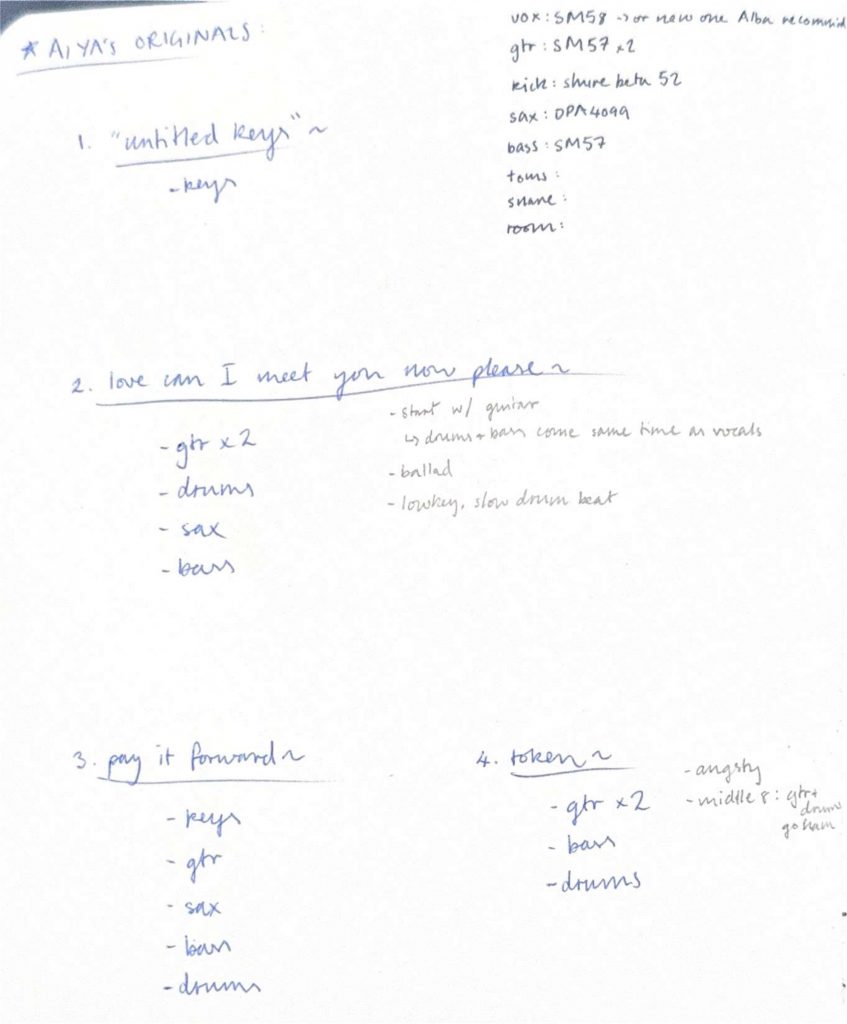 * AIYA'S ORIGINALS:
vox: SM58 -> or new one Alba recommend
gtr: SM57 x2
kick: shure beta 52
sax: DPA4099
bass: SM57
toms:
snare:
room:
1. "untitled keys" ~
- keys
2. love can I meet you now please ~
- gtr x2
- drums
- sax
- bass
- start w/ guitar
↳ drums + bass come same time as vocals
- ballad
- lowkey, slow drum beat
3. pay it forward ~
- keys
- gtr
- sax
- bass
- drums
4. token ~
- gtr x2
- bass
- drums
- angsty
- middle 8: gtr +
drums
go ham